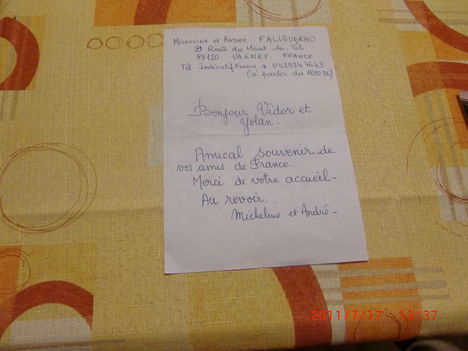 Micheline et André FALIGUERHO
21 Route du Haut du Tôt
88120 VAGNEY. FRANCE
Tél Indicatif France + 0329247643
(à partir du 18.10.96)
Bonjour Vidor et
Yolan.
Amical souvenir de
vos amis de France
Merci de votre accueil-
Au revoir.
Micheline et André-
2011/7/17 13:37